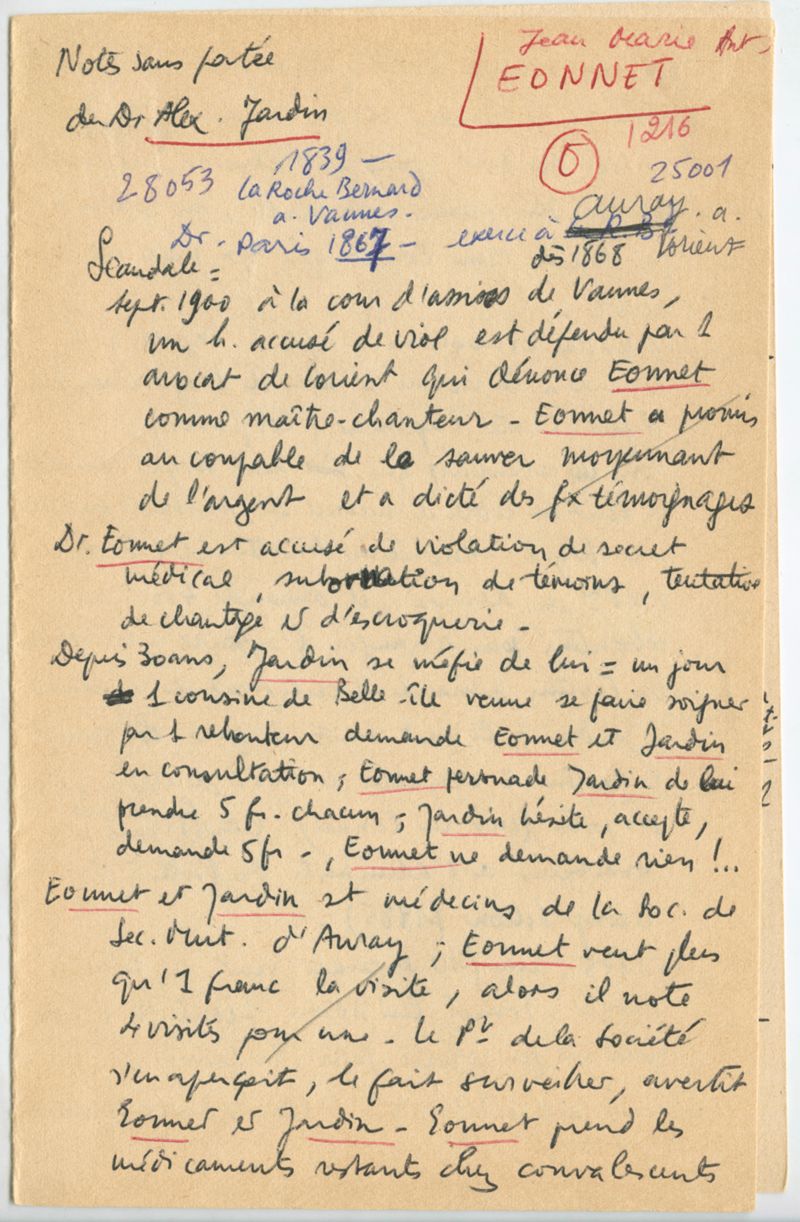 Notes sans portée
du Dr Alex. Jardin
Jean Marie Ant.
EONNET
1216
28053
1839 –
la Roche Bernard
a. Vannes.
25001
Auray. a.
Lorient
Dr. Paris 1867 – exerce à
dès 1868
Scandale =
Sept. 1900 à la cour d'assises de Vannes,
un h. accusé de viol est défendu par 1
avocat de Lorient qui dénonce Eonnet
comme maître-chanteur – Eonnet a promis
au coupable de le sauver moyennant
de l'argent et a dicté des fx témoignages
Dr. Eonnet est accusé de violation de secret
médical, subornation de témoins, tentative
de chantage et d'escroquerie –
Depuis 30 ans, Jardin se méfie de lui = un jour
1 cousine de Belle-île venue se faire soigner
par 1 rebouteur demande Eonnet et Jardin
en consultation ; Eonnet persuade Jardin de lui
prendre 5 fr. chacun ; Jardin hésite, accepte,
demande 5 fr –, Eonnet ne demande rien !..
Eonnet et Jardin st médecins de la Soc. de
Sec. Mut. d'Auray ; Eonnet veut plus
qu'1 franc la visite, alors il note
4 visites pour une – le Pt de la Société
s'en aperçoit, le fait surveiller, avertit
Eonnet et Jardin – Eonnet prend les
médicaments restants chez convalescents